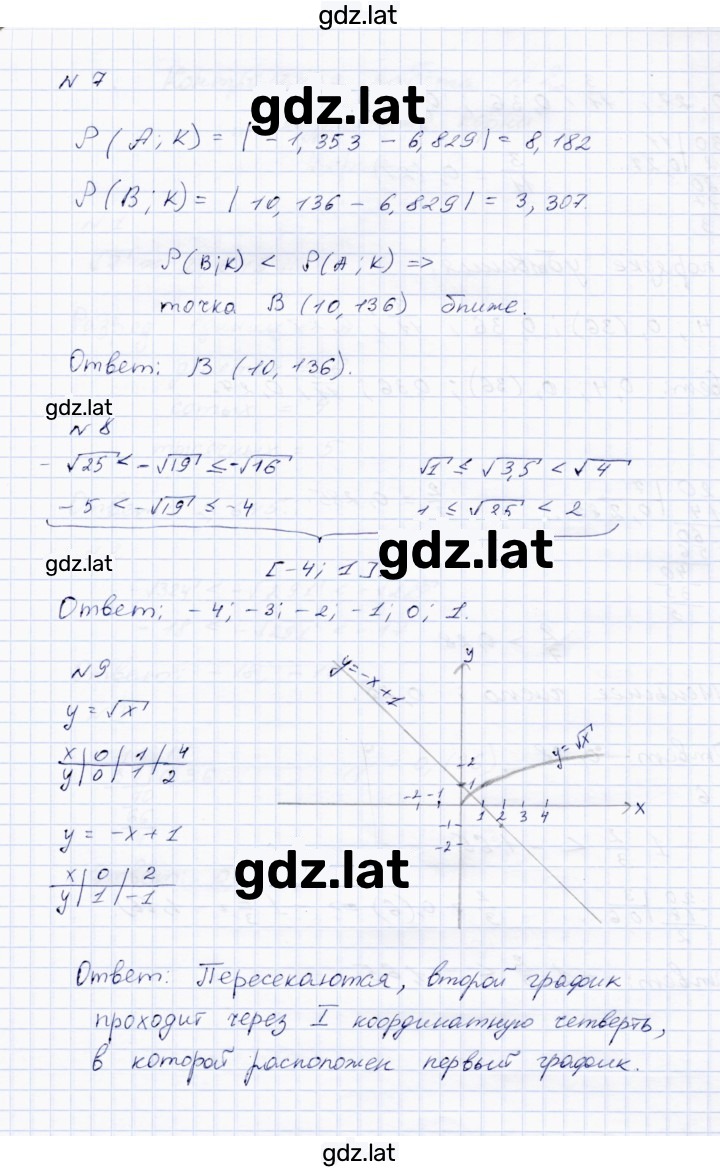 gdz.lat
N 7
gdz.lat
ρ(A; K) = |-1,353 - 6,829| = 8,182
ρ(B; K) = |10,136 - 6,829| = 3,307.
ρ(B; K) < ρ(A; K) =>
точка B (10,136) ближе.
Ответ: B (10,136).
gdz.lat
N 8
-√25 < -√19 ≤ -√16
√1 ≤ √3,5 < √4
-5 < -√19 ≤ -4
1 ≤ √25 < 2
gdz.lat
gdz.lat
[-4; 1].
Ответ: -4; -3; -2; -1; 0; 1.
N 9
y = √x
x | 0 | 1 | 4
y | 0 | 1 | 2
y = -x + 1
x | 0 | 2
y | 1 | -1
y
y=-x+1
2
1
y=√x
-2 -1
1 2 3 4
x
-1
-2
gdz.lat
Ответ: Пересекаются, второй график
проходит через I координатную четверть,
в которой расположен первый график.
gdz.lat